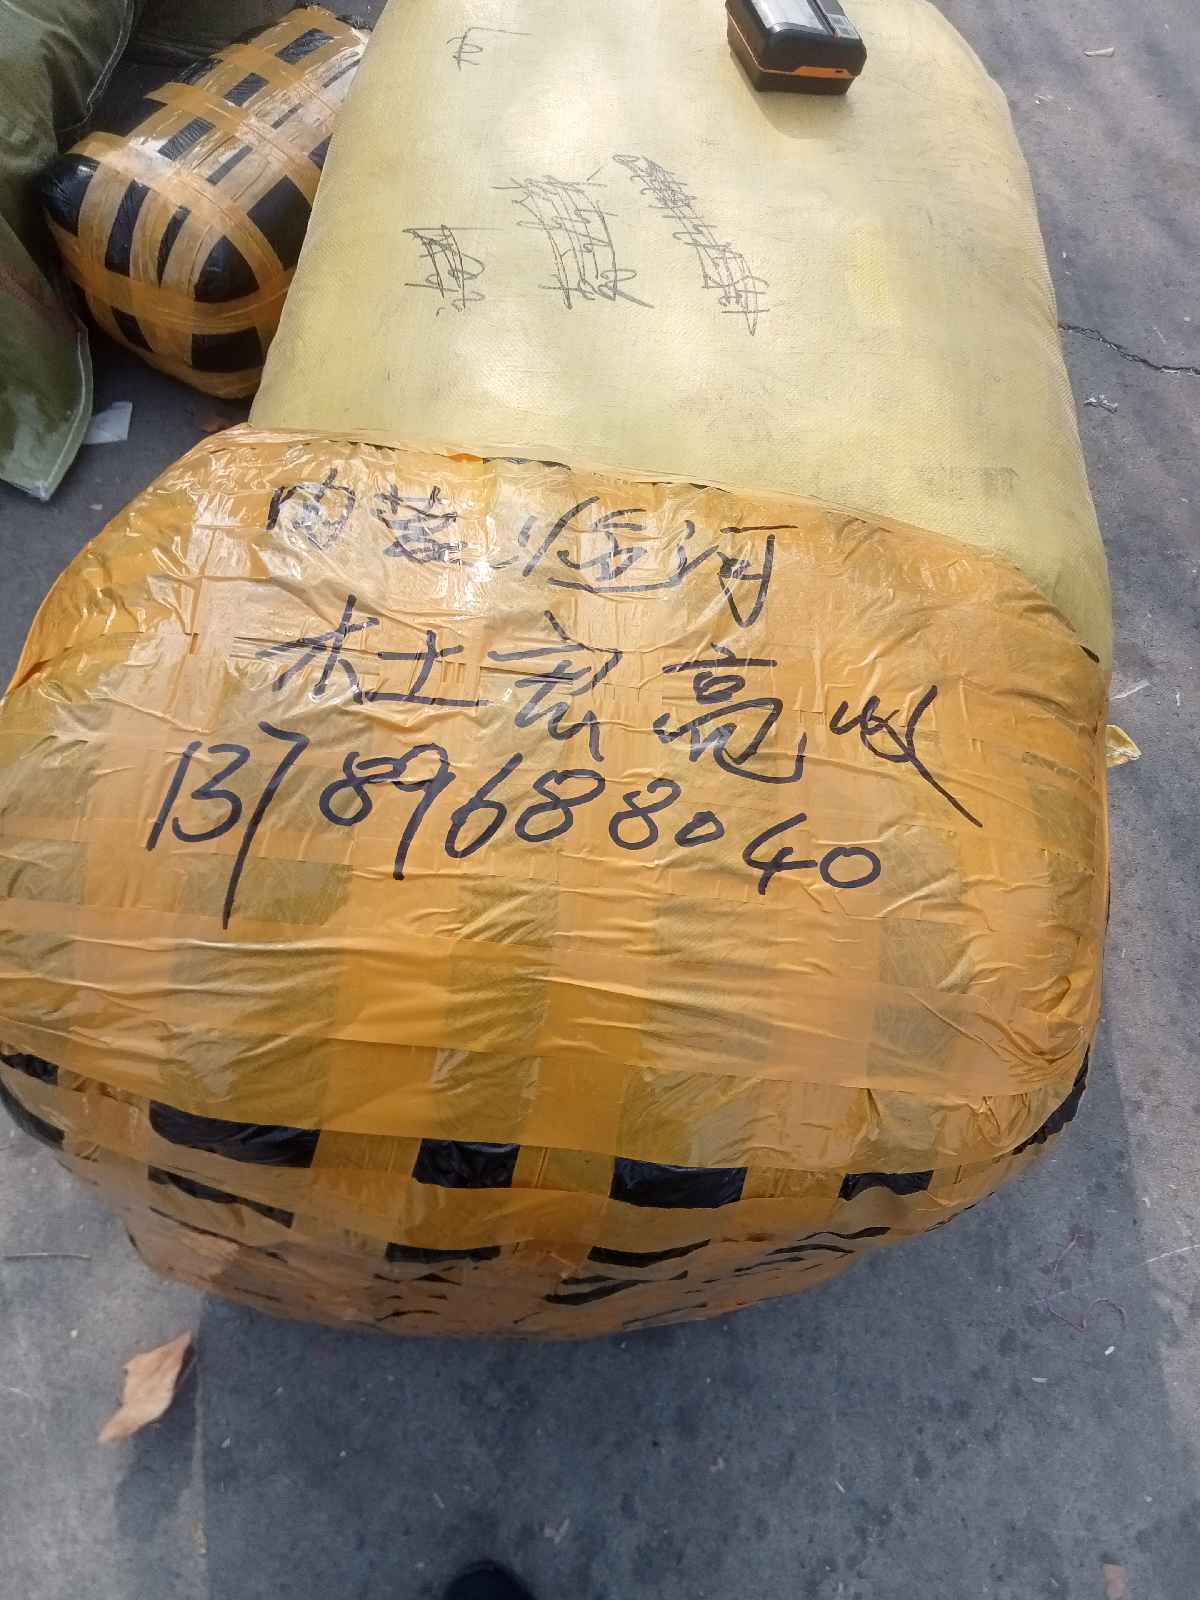 内蒙临河
杜宏亮收
13789688040